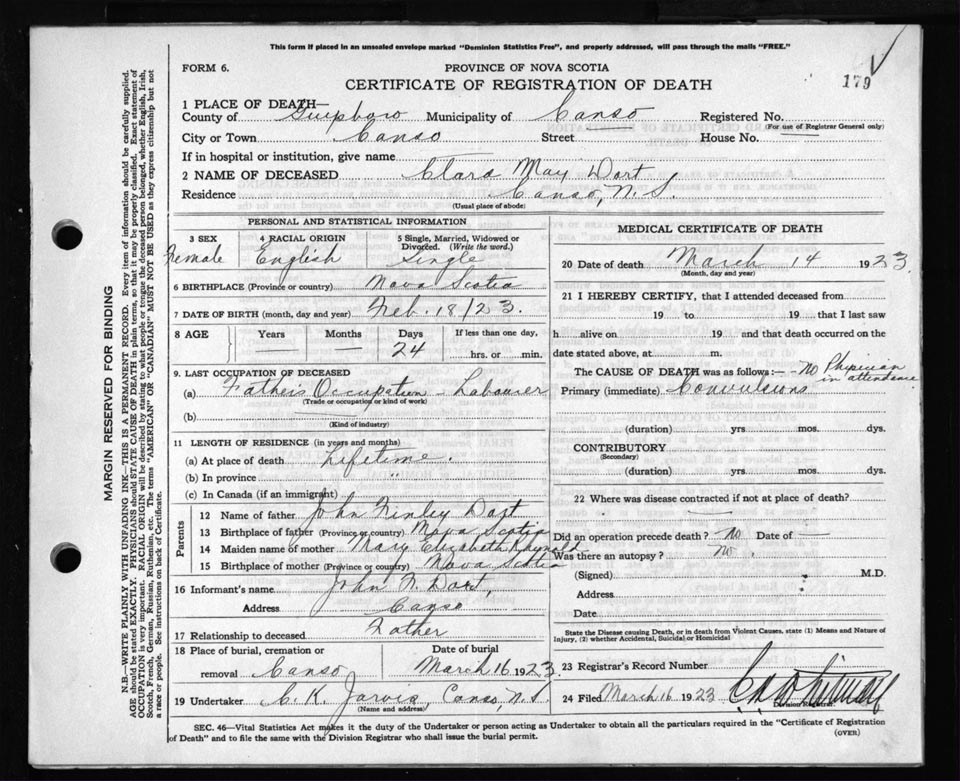 This form if placed in an unsealed envelope marked "Dominion Statistics Free", and properly addressed, will pass through the mails "FREE."
FORM 6.
PROVINCE OF NOVA SCOTIA
179
CERTIFICATE OF REGISTRATION OF DEATH
1 PLACE OF DEATH—
County of Municipality of Canso Registered No.
(For use of Registrar General only)
City or Town Canso Street House No.
If in hospital or institution, give name
2 NAME OF DECEASED Clara May Dort
Residence Canso, N.S.
(Usual place of abode)
PERSONAL AND STATISTICAL INFORMATION
3 SEX 4 RACIAL ORIGIN 5 Single, Married, Widowed or Divorced. (Write the word.)
Female English Single
6 BIRTHPLACE (Province or country) Nova Scotia
7 DATE OF BIRTH (month, day and year) Feb. 18/23.
8 AGE Years Months Days If less than one day,
— — 24 hrs. or min.
9. LAST OCCUPATION OF DECEASED
(a) Father's Occupation - Labourer
(Trade or occupation or kind of work)
(b)
(Kind of industry)
11 LENGTH OF RESIDENCE (in years and months)
(a) At place of death Lifetime.
(b) In province "
(c) In Canada (if an immigrant)
Parents
12 Name of father John Finley Dort
13 Birthplace of father (Province or country) Nova Scotia
14 Maiden name of mother Mary Elizabeth
15 Birthplace of mother (Province or country) Nova Scotia
16 Informant's name John F. Dort,
Address Canso
17 Relationship to deceased Father
18 Place of burial, cremation or removal Canso
Date of burial March 16 1923
19 Undertaker C. K. Jarvis Canso, N.S
(Name and address)
MEDICAL CERTIFICATE OF DEATH
20 Date of death March 14 1923.
(Month, day and year)
21 I HEREBY CERTIFY, that I attended deceased from
19 to 19 that I last saw
h alive on 19 and that death occurred on
date stated above, at m.
The CAUSE OF DEATH was as follows:— No Physician in attendance
Primary (immediate) Convulsions
(duration) yrs. mos. dys.
CONTRIBUTORY
(Secondary)
(duration) yrs. mos. dys.
22 Where was disease contracted if not at place of death?
Did an operation precede death? No Date of —
Was there an autopsy? No.
(Signed) M.D.
Address
Date
State the Disease causing Death, or in death from Violent Causes, state (1) Means and Nature of
Injury, (2) whether Accidental, Suicidal or Homicidal
23 Registrar's Record Number
24 Filed March 16 1923
Division Registrar
SEC. 46—Vital Statistics Act makes it the duty of the Undertaker or person acting as Undertaker to obtain all the particulars required in the "Certificate of Registration
of Death" and to file the same with the Division Registrar who shall issue the burial permit.
(OVER)
MARGIN RESERVED FOR BINDING
N.B.—WRITE PLAINLY WITH UNFADING INK—THIS IS A PERMANENT RECORD. Every item of information should be carefully supplied.
AGE should be stated EXACTLY. PHYSICIANS should STATE CAUSE OF DEATH in plain terms, so that it may be properly classified. Exact statement of
OCCUPATION is very important. RACIAL ORIGIN will be described by stating to what people or tongue the deceased person belonged, whether English, Irish,
Scotch, French, German, Russian, Ruthenian, etc. The terms "AMERICAN" OR "CANADIAN" MUST NOT BE USED as they express citizenship but not
a race or people. See instructions on back of Certificate.